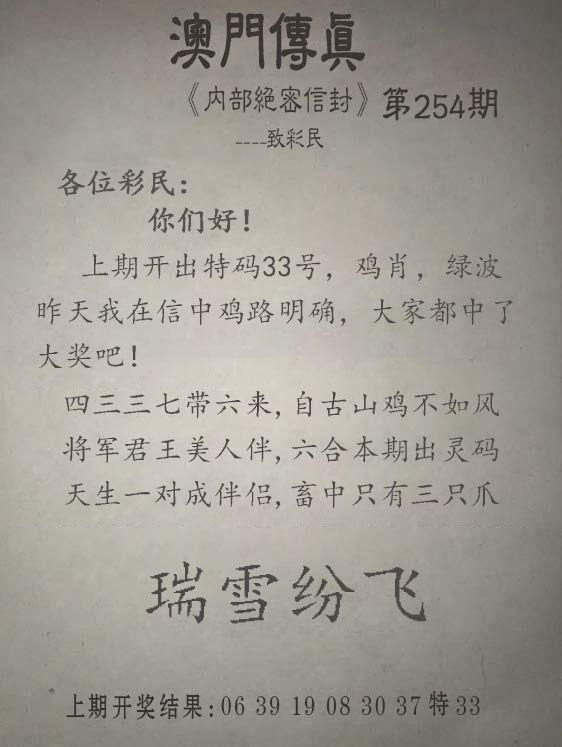 澳門傳真
《内部絕密信封》第254期
----致彩民
各位彩民：
你们好！
上期开出特码33号，鸡肖，绿波
昨天我在信中鸡路明确，大家都中了
大奖吧！
四三三七带六来,自古山鸡不如风
将军君王美人伴,六合本期出灵码
天生一对成伴侣,畜中只有三只爪
瑞雪纷飞
上期开奖结果:06 39 19 08 30 37特33